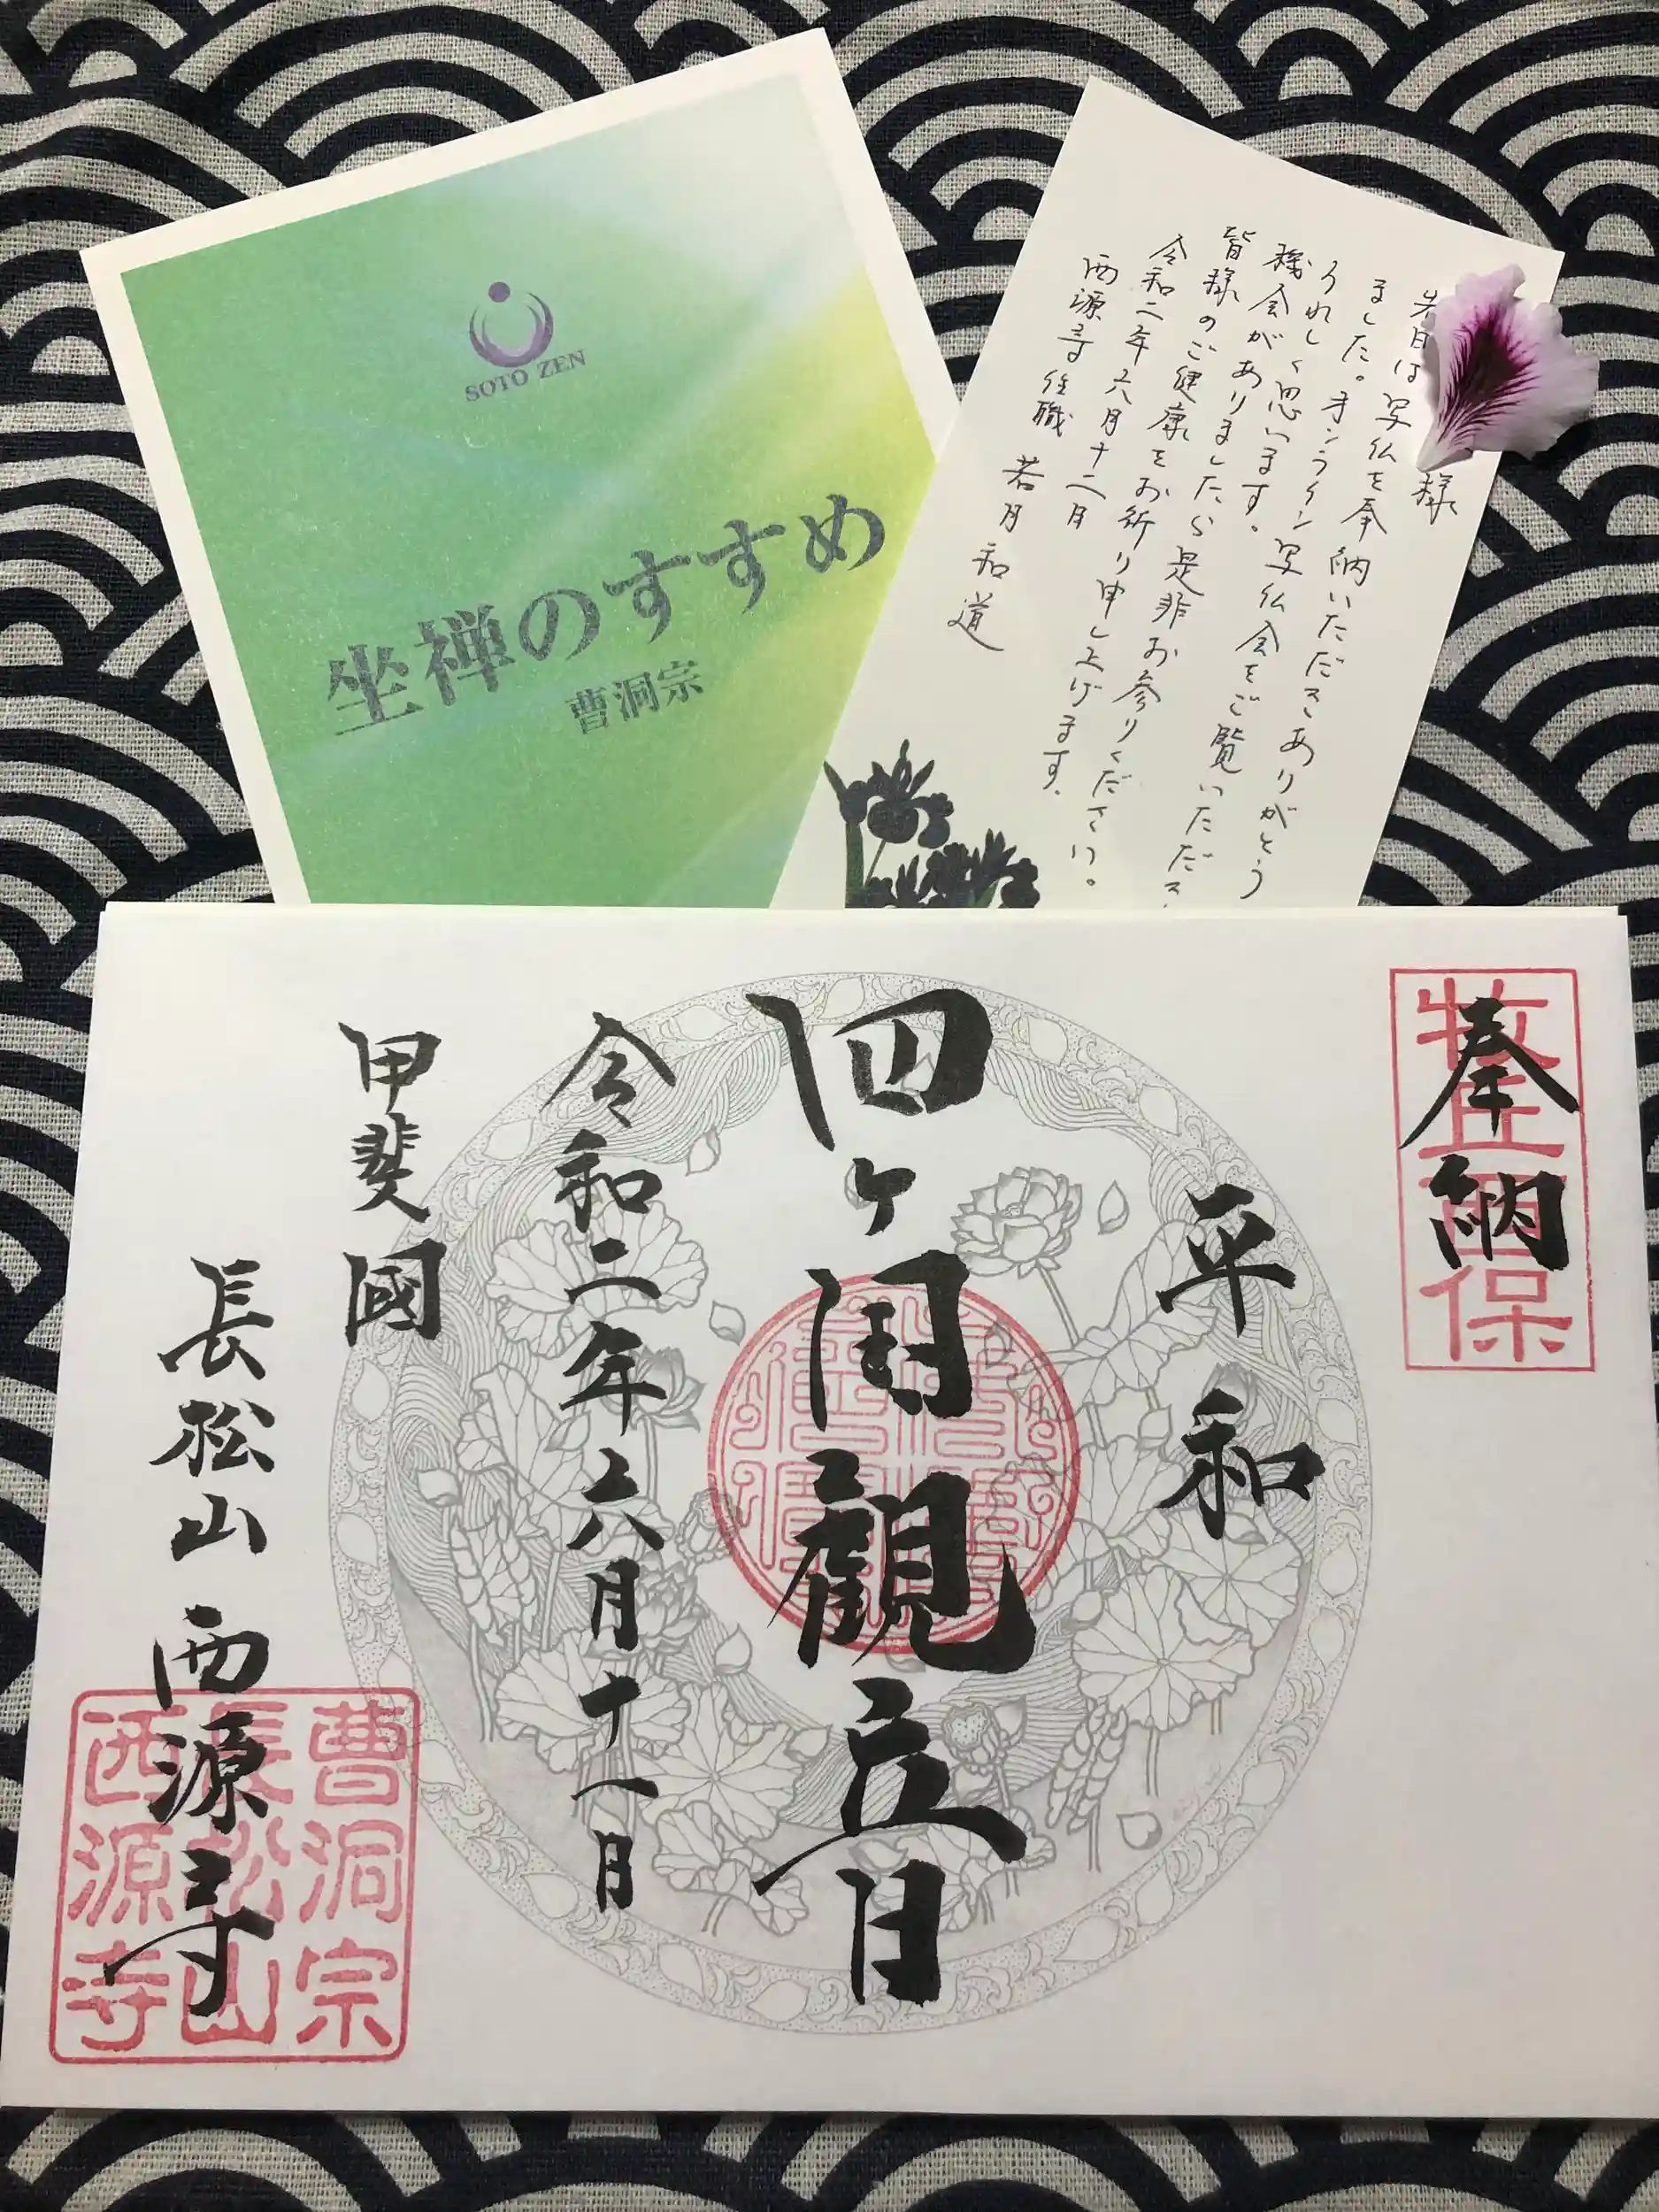 SOTO ZEN
坐禅のすすめ
曹洞宗
様
先日は写仏を奉納いただきありがとう
ました。オンライン写仏会をご覧いただき
うれしく思います。
機会がありましたら是非お参りください。
皆様のご健康をお祈り申し上げます。
令和二年六月十二日
西源寺住職 若月和道
奉納
平和
四ヶ閏観音
令和二年六月十一日
甲斐國
長松山 西源寺
曹洞宗
長松山
西源寺